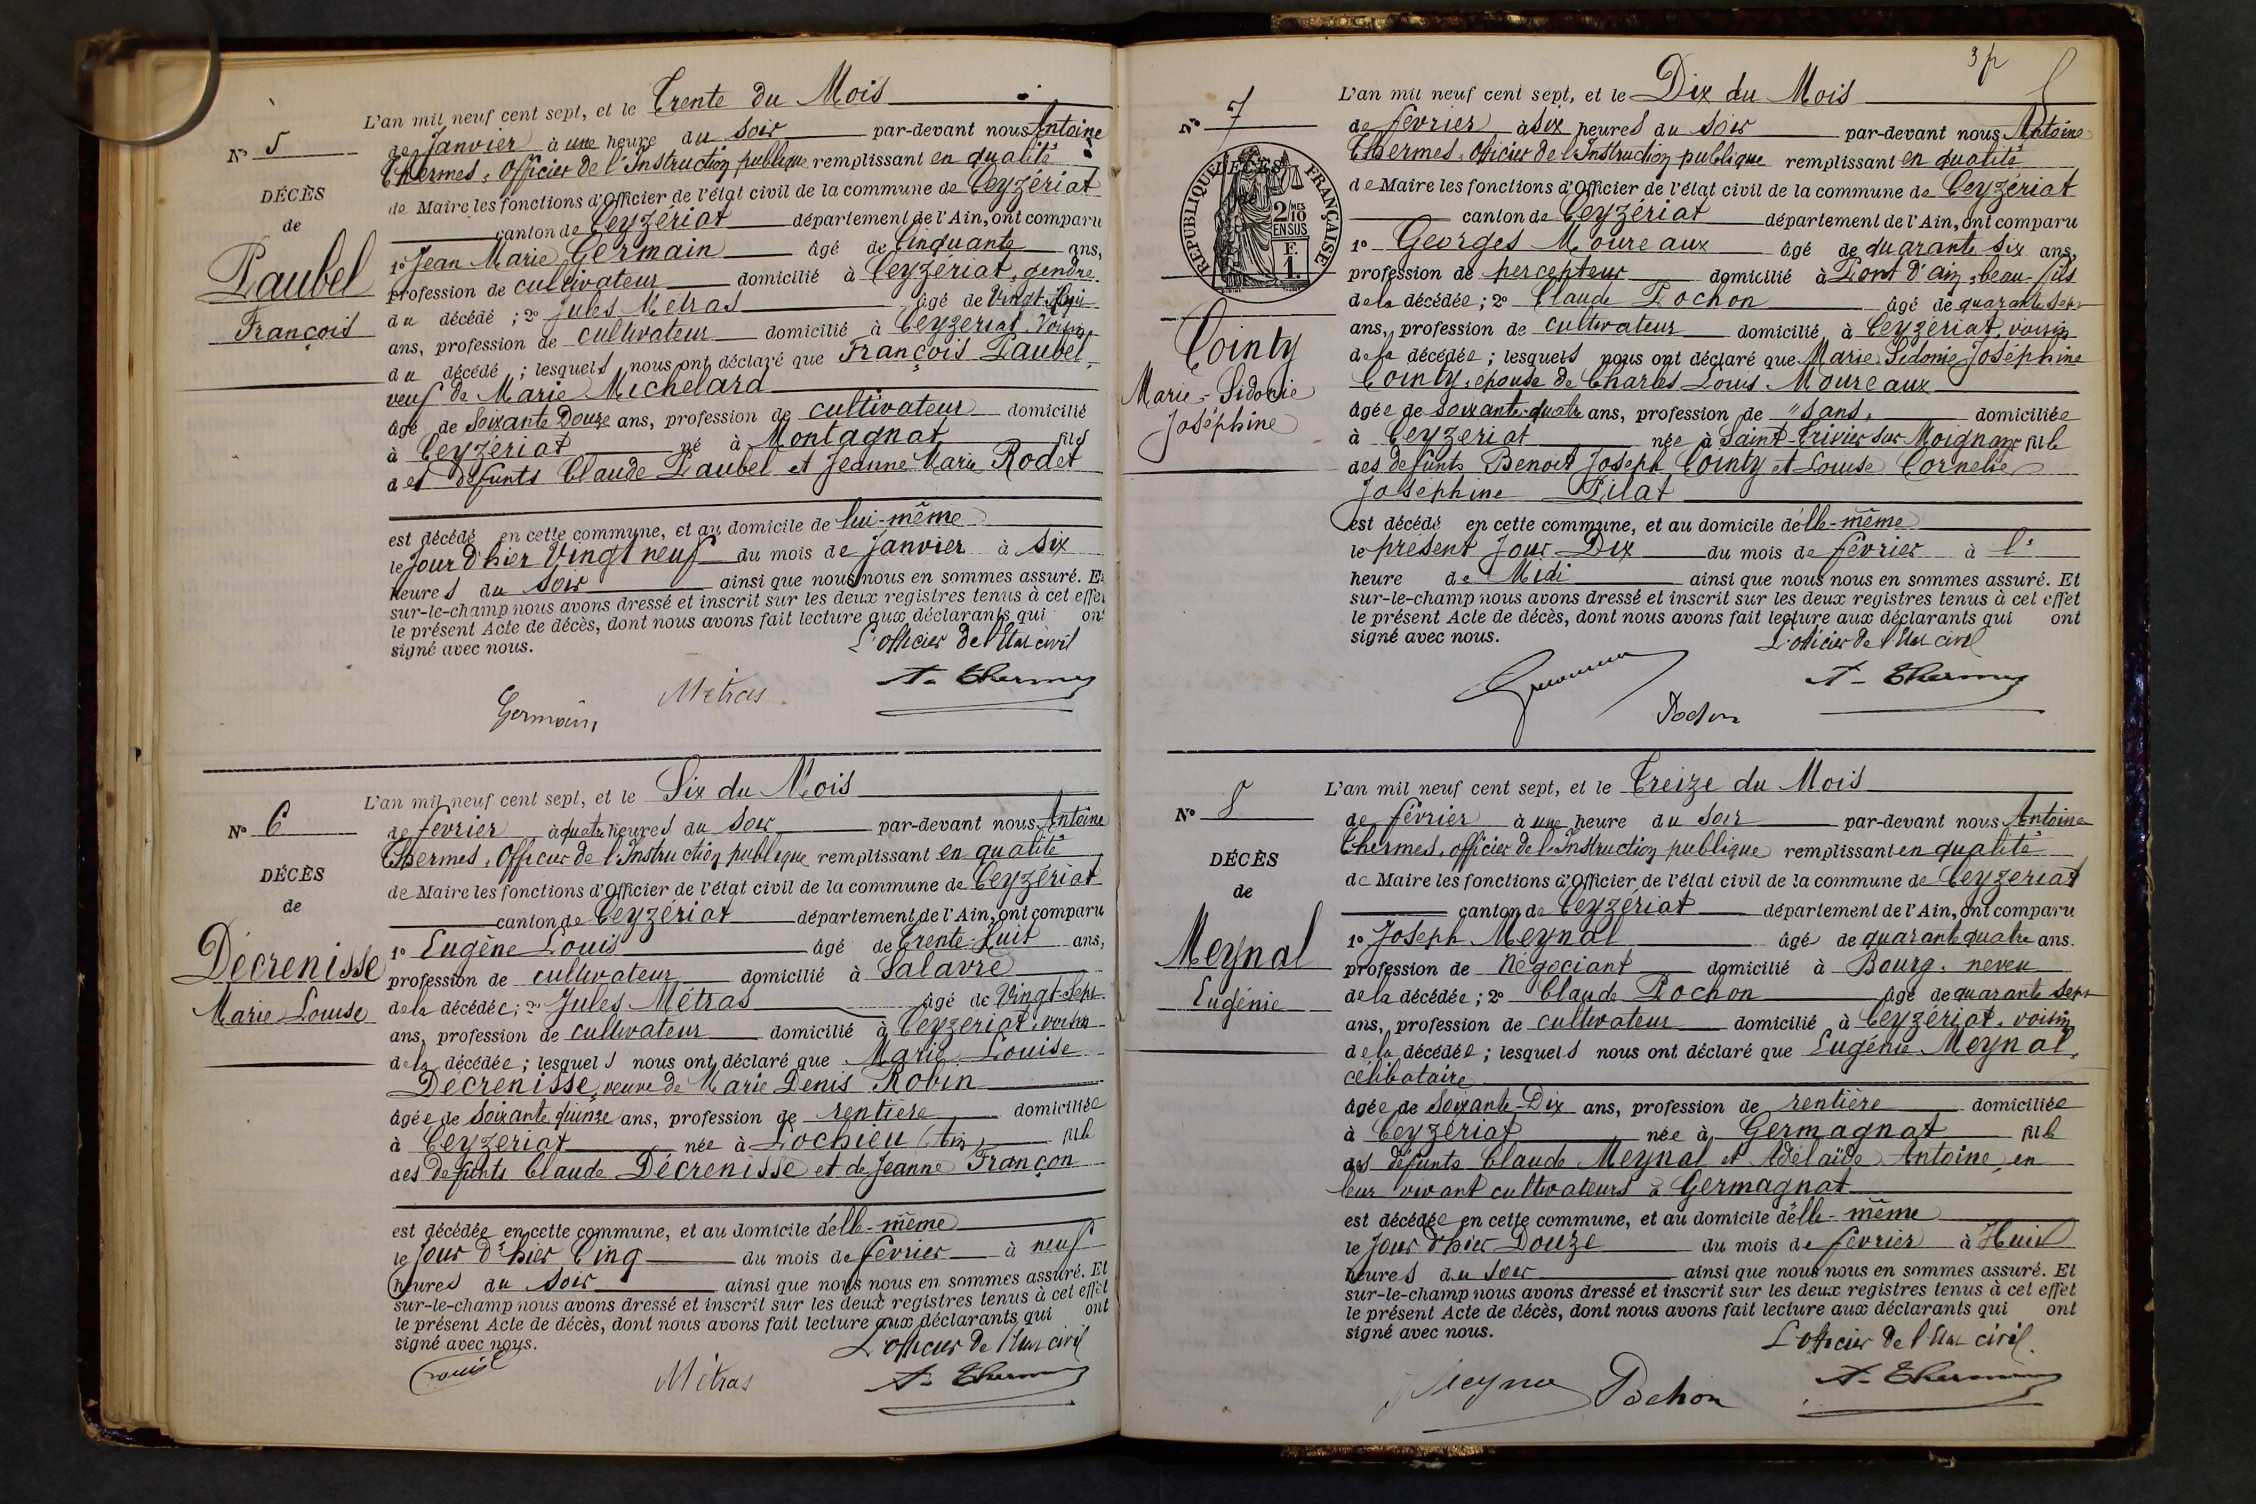 N° 5
DÉCÈS
de
Paubel
François
L'an mil neuf cent sept, et le Trente du Mois
de Janvier à une heure du soir par-devant nous Antoine
Thermes, Officier de l'Instruction publique remplissant en qualité
de Maire les fonctions d'Officier de l'état civil de la commune de Ceyzériat
canton de Ceyzériat département de l'Ain, ont comparu
1° Jean Marie Germain âgé de Cinquante ans,
profession de cultivateur domicilié à Ceyzériat, gendre
du décédé ; 2° Jules Métras âgé de Vingt
ans, profession de cultivateur domicilié à Ceyzériat, Voisin
du décédé ; lesquels nous ont déclaré que François Paubel,
veuf de Marie Michelard
âgé de Soixante Douze ans, profession de cultivateur domicilié
à Ceyzériat né à Montagnat fils
des défunts Claude Paubel et Jeanne Marie Rodet
est décédé en cette commune, et au domicile de lui-même
le Jour d'hier Vingt neuf du mois de Janvier à six
heures du soir ainsi que nous nous en sommes assuré. Et
sur-le-champ nous avons dressé et inscrit sur les deux registres tenus à cet effet
le présent Acte de décès, dont nous avons fait lecture aux déclarants qui ont
signé avec nous.
L'officier de l'Etat civil
Germain
Métras
A. Thermes
N° 6
DÉCÈS
de
Décrenisse
Marie Louise
L'an mil neuf cent sept, et le Six du Mois
de février à quatre heures du soir par-devant nous Antoine
Thermes, Officier de l'Instruction publique remplissant en qualité
de Maire les fonctions d'Officier de l'état civil de la commune de Ceyzériat
canton de Ceyzériat département de l'Ain, ont comparu
1° Eugène Louis âgé de Trente-Huit ans,
profession de cultivateur domicilié à Salavre
de la décédée ; 2° Jules Métras âgé de Vingt-Sept
ans, profession de cultivateur domicilié à Ceyzériat, voisin
de la décédée ; lesquels nous ont déclaré que Marie Louise
Décrenisse, veuve de Marie Denis Robin
âgée de Soixante quinze ans, profession de rentière domiciliée
à Ceyzériat née à Lochieu (Ain) fille
des défunts Claude Décrenisse et de Jeanne Françon
est décédée en cette commune, et au domicile d'elle-même
le Jour d'hier Cinq du mois de février à neuf
heures du soir ainsi que nous nous en sommes assuré. Et
sur-le-champ nous avons dressé et inscrit sur les deux registres tenus à cet effet
le présent Acte de décès, dont nous avons fait lecture aux déclarants qui ont
signé avec nous.
L'officier de l'Etat civil
Louis
Métras
A. Thermes
3p
N° 7
DÉCÈS
de
RÉPUBLIQUE FRANÇAISE
2/10 MES
EN SUS
F.
1.
Cointy
Marie-Sidonie
Joséphine
L'an mil neuf cent sept, et le Dix du Mois
de février à six heures du soir par-devant nous Antoine
Thermes, Officier de l'Instruction publique remplissant en qualité
de Maire les fonctions d'Officier de l'état civil de la commune de Ceyzériat
canton de Ceyzériat département de l'Ain, ont comparu
1° Georges Moureaux âgé de quarante six ans,
profession de percepteur domicilié à Pont d'ain, beau-fils
de la décédée ; 2° Claude Pochon âgé de quarante sept
ans, profession de cultivateur domicilié à Ceyzériat, voisin
de la décédée ; lesquels nous ont déclaré que Marie Sidonie Joséphine
Cointy, épouse de Charles Louis Moureaux
âgée de soixante-quatre ans, profession de "sans, domiciliée
à Ceyzériat née à Saint-Trivier sur Moignans fille
des défunts Benoit Joseph Cointy et Louise Cornelie
Joséphine Pilat
est décédé en cette commune, et au domicile d'elle-même
le présent Jour Dix du mois de février à l'
heure de Midi ainsi que nous nous en sommes assuré. Et
sur-le-champ nous avons dressé et inscrit sur les deux registres tenus à cet effet
le présent Acte de décès, dont nous avons fait lecture aux déclarants qui ont
signé avec nous.
L'officier de l'Etat civil
Pochon
A. Thermes
N° 8
DÉCÈS
de
Meynal
Eugénie
L'an mil neuf cent sept, et le Treize du Mois
de février à une heure du soir par-devant nous Antoine
Thermes, officier de l'Instruction publique remplissant en qualité
de Maire les fonctions d'Officier de l'état civil de la commune de Ceyzériat
canton de Ceyzériat département de l'Ain, ont comparu
1° Joseph Meynal âgé de quarante quatre ans.
profession de Négociant domicilié à Bourg, neveu
de la décédée ; 2° Claude Pochon âgé de quarante sept
ans, profession de cultivateur domicilié à Ceyzériat, voisin
de la décédée ; lesquels nous ont déclaré que Eugénie Meynal,
célibataire
âgée de Soixante-Dix ans, profession de rentière domiciliée
à Ceyzériat née à Germagnat fille
des défunts Claude Meynal et Adélaïde Antoine, en
leur vivant cultivateurs à Germagnat
est décédée en cette commune, et au domicile d'elle-même
le Jour d'hier Douze du mois de février à Huit
heures du soir ainsi que nous nous en sommes assuré. Et
sur-le-champ nous avons dressé et inscrit sur les deux registres tenus à cet effet
le présent Acte de décès, dont nous avons fait lecture aux déclarants qui ont
signé avec nous.
L'officier de l'Etat civil.
Meynal
Pochon
A. Thermes